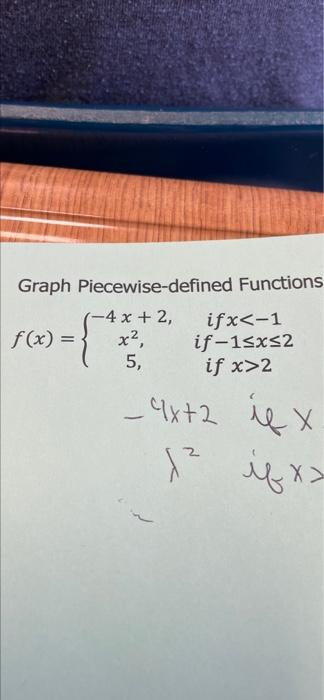 Graph Piecewise-defined Functions
f(x) = { −4 x + 2, if x<−1
x², if −1≤x≤2
5, if x>2
-4x+2 if x
x² if x>